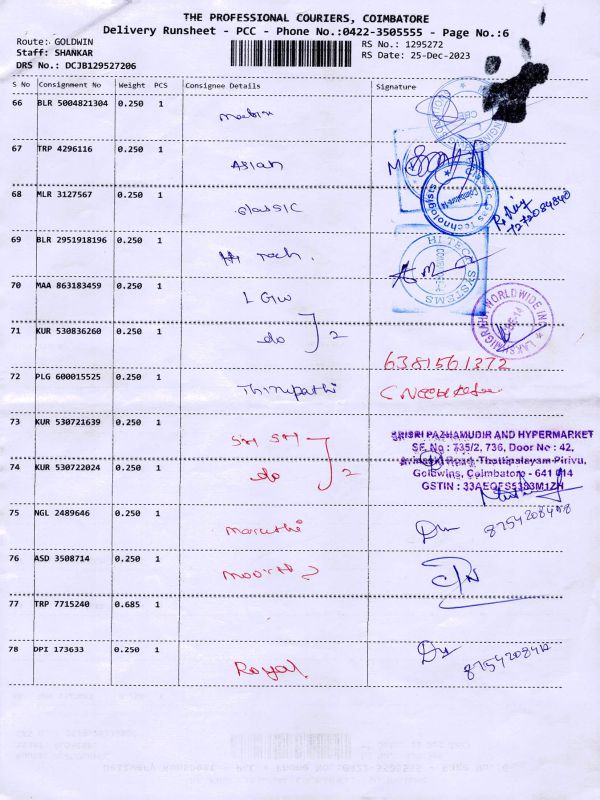 THE PROFESSIONAL COURIERS, COIMBATORE
Delivery Runsheet - PCC - Phone No.:0422-3505555 - Page No.:6
Route: GOLDWIN
Staff: SHANKAR
DRS No.: DCJB129527206
RS No.: 1295272
RS Date: 25-Dec-2023
S No Consignment No Weight PCS Consignee Details Signature
66 BLR 5004821304 0.250 1
67 TRP 4296116 0.250 1 Asian
68 MLR 3127567 0.250 1 classic
7272084840
Gas Technologists
69 BLR 2951918196 0.250 1 Hi Tech.
HI TECH SYSTEMS
70 MAA 863183459 0.250 1 LGW
WORLDWIDE
71 KUR 530836260 0.250 1 do 2
6381561372
72 PLG 600015525 0.250 1 Thirupathi
73 KUR 530721639 0.250 1 SM SM
SRISRI PAZHAMUDIR AND HYPERMARKET
SF. No : 735/2, 736, Door No : 42,
Avinashi Road, Thottipalayam Pirivu,
Goldwins, Coimbatore - 641 014
GSTIN : 33AEQFS5383M1ZH
74 KUR 530722024 0.250 1 do 2
75 NGL 2489646 0.250 1 maruthi
76 ASD 3508714 0.250 1
77 TRP 7715240 0.685 1
78 DPI 173633 0.250 1 Royal